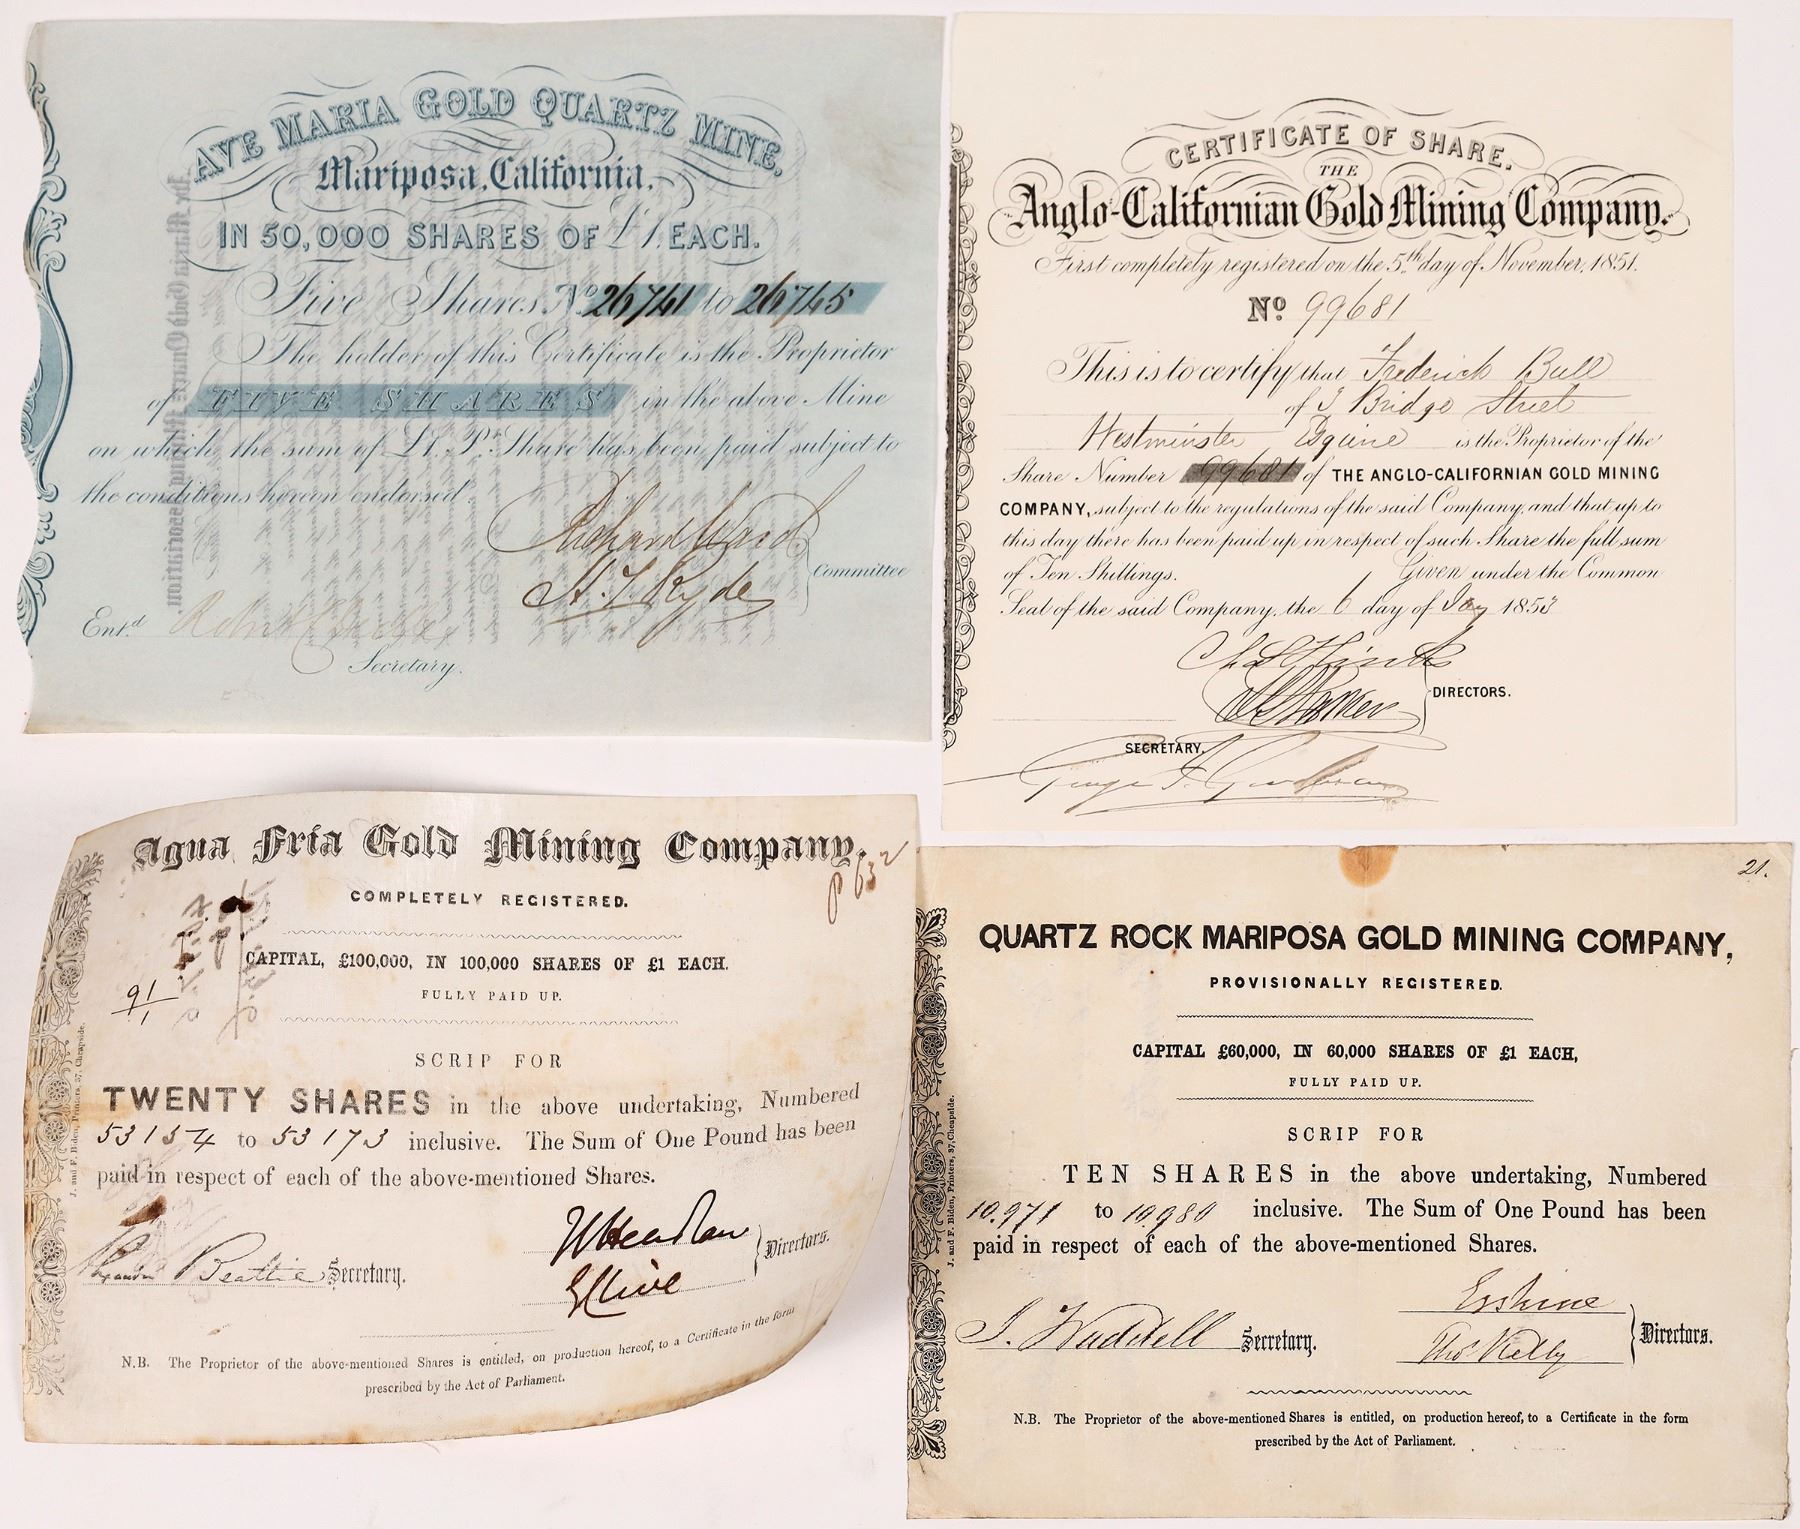 AVE MARIA GOLD QUARTZ MINE.
Mariposa, California.
IN 50,000 SHARES OF £1 EACH.
Five Shares. No 26741 to 26745
The holder of this Certificate is the Proprietor
of FIVE SHARES in the above Mine
on which the sum of £1. Pr. Share has been paid subject to
the conditions hereon endorsed.
Richard Ward
H. T. Ryde
Committee
Entd.
Secretary.
CERTIFICATE OF SHARE.
THE
Anglo-Californian Gold Mining Company.
First completely registered on the 5th day of November, 1851.
No 99681
This is to certify that Frederick Bull
of 3 Bridge Street
Westminster Esquire is the Proprietor of the
Share Number 99681 of THE ANGLO-CALIFORNIAN GOLD MINING
COMPANY, subject to the regulations of the said Company, and that up to
this day there has been paid up, in respect of such Share the full sum
of Ten Shillings. Given under the Common
Seal of the said Company, the 6 day of 1853
DIRECTORS.
SECRETARY.
Agua Fria Gold Mining Company.
P 632
COMPLETELY REGISTERED.
CAPITAL, £100,000, IN 100,000 SHARES OF £1 EACH.
91/1
FULLY PAID UP.
SCRIP FOR
TWENTY SHARES in the above undertaking, Numbered
53154 to 53173 inclusive. The Sum of One Pound has been
paid in respect of each of the above-mentioned Shares.
Directors.
Beattie Secretary.
N.B. The Proprietor of the above-mentioned Shares is entitled, on production hereof, to a Certificate in the form
prescribed by the Act of Parliament.
J. and F. Biden, Printers, 37, Cheapside.
21.
QUARTZ ROCK MARIPOSA GOLD MINING COMPANY,
PROVISIONALLY REGISTERED.
CAPITAL £60,000, IN 60,000 SHARES OF £1 EACH,
FULLY PAID UP.
SCRIP FOR
TEN SHARES in the above undertaking, Numbered
10,971 to 10,980 inclusive. The Sum of One Pound has been
paid in respect of each of the above-mentioned Shares.
Erskine
J. Waddell Secretary.
Thos Kelly
Directors.
N.B. The Proprietor of the above-mentioned Shares is entitled, on production hereof, to a Certificate in the form
prescribed by the Act of Parliament.
J. and F. Biden, Printers, 37, Cheapside.